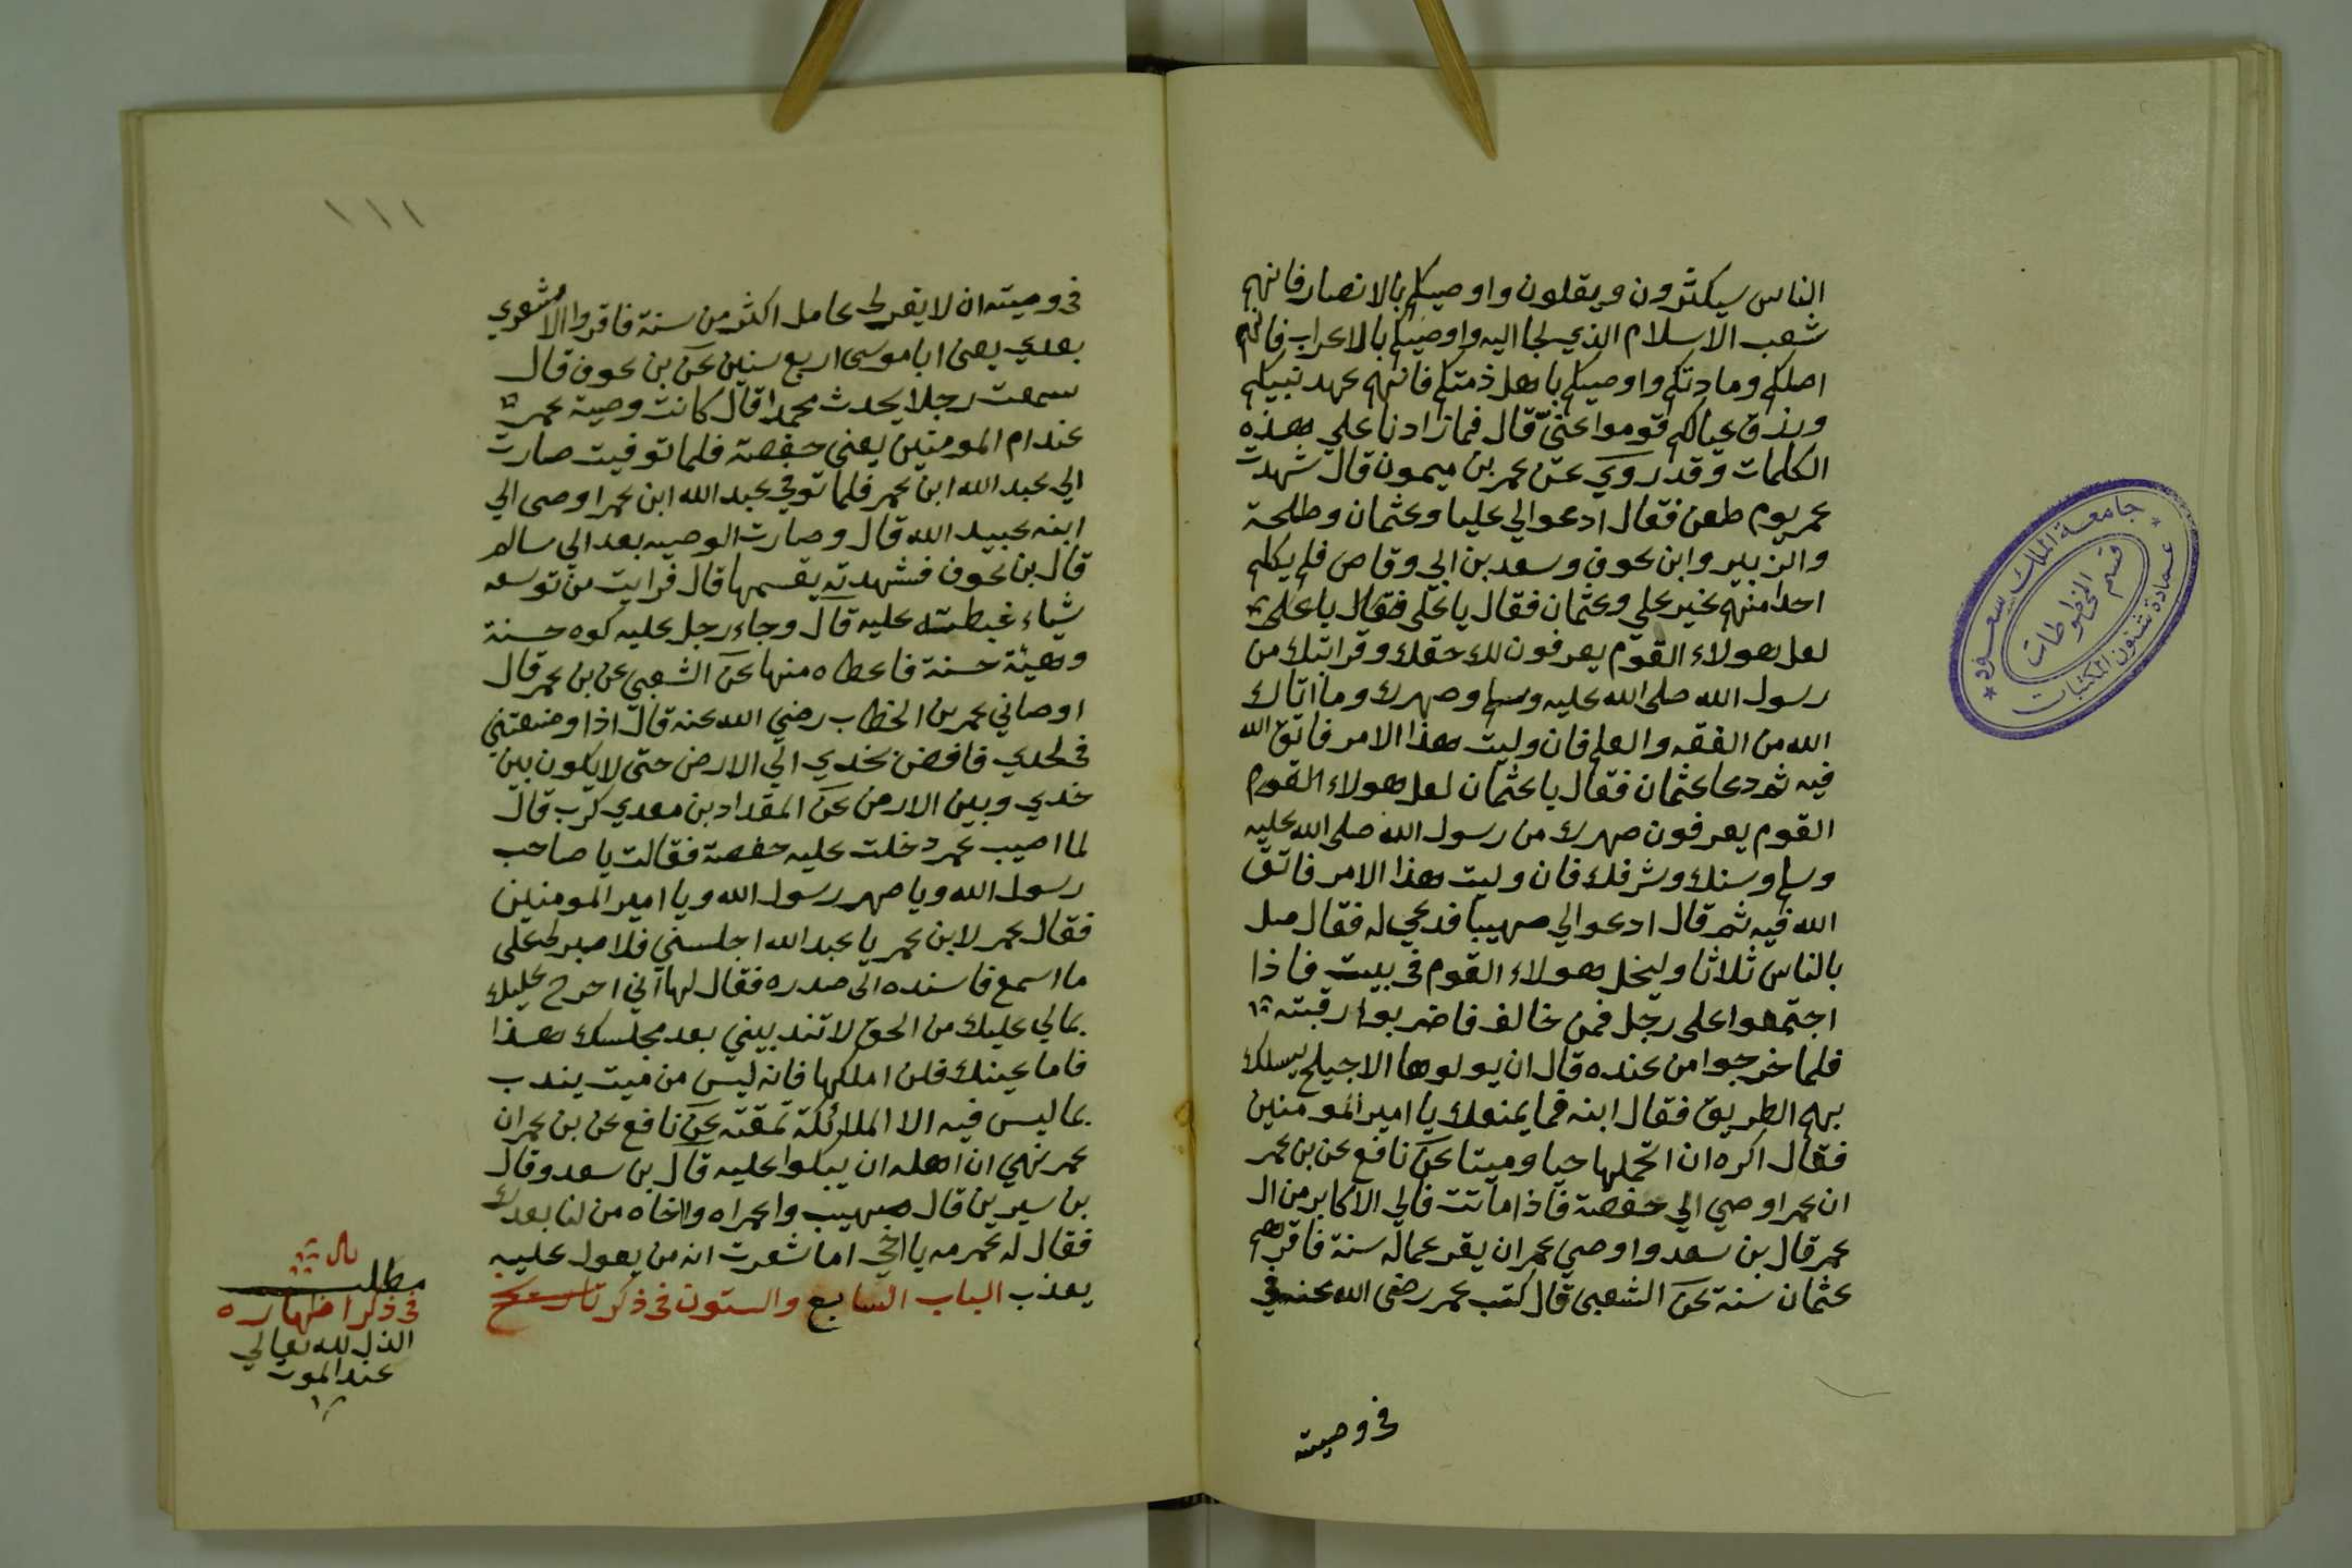 الناس سيكثرون ويقلون واوصيكم بالانصار فانهم
شعب الاسلام الذي لجا اليه واوصيكم بالاعراب فانهم
اصلكم ومادتكم واوصيكم باهل ذمتكم فانهم عهد نبيكم
ورزق عيالكم قوموا عني قال فما زادنا علي هذه
الكلمات وقد روي عن عمر بن ميمون قال شهدت
عمر يوم طعن فقال ادعوا لي عليا وعثمان وطلحة
والزبير وابن عوف وسعد بن ابي وقاص فلم يكلم
احدا منهم غير علي وعثمان فقال يا علي فقال يا علي
لعل هولاء القوم يعرفون لك حقك وقرابتك من
رسول الله صلى الله عليه وسلم وصهرك وما اتاك
الله من الفقه والعلم فان وليت هذا الامر فاتق الله
فيه ثم دعا عثمان فقال يا عثمان لعل هولاء القوم
القوم يعرفون صهرك من رسول الله صلى الله عليه
وسلم وسنك وشرفك فان وليت هذا الامر فاتق
الله فيه ثم قال ادعوا لي صهيبا فدعي له فقال صل
بالناس ثلاثا وليخل هولاء القوم في بيت فاذا
اجتمعوا على رجل فمن خالف فاضربوا رقبته
فلما خرجوا من عنده قال ان يولوها الاجيلح يسلك
بهم الطريق فقال ابنه فما يمنعك يا امير المومنين
فقال اكره ان اتحملها حيا وميتا عن نافع عن بن عمر
ان عمر اوصي الي حفصة فاذا ماتت فالي الاكابر من ال
عمر قال بن سعد واوصي عمر ان يقر عماله سنة فاقرهم
عثمان سنة عن الشعبي قال كتب عمر رضى الله عنه في
في وصيته
جامعة الملك سعود
قسم المخطوطات
عمادة شئون المكتبات
١١١
في وصيته ان لا يقر لي عامل اكثر من سنة فاقروا الاشعري
بعدي يعني ابا موسى اربع سنين عن بن عوف قال
سمعت رجلا يحدث محمدا قال كانت وصية عمر
عند ام المومنين يعني حفصة فلما توفيت صارت
الي عبد الله ابن عمر فلما توفي عبد الله ابن عمر اوصى الي
ابنه عبيد الله قال وصارت الوصيه بعد الي سالم
قال بن عون فشهدته يقسمها قال فرايت من توسعه
شياء غبطته عليه قال وجاء رجل عليه كوه حسنة
وهيئة حسنة فاعطاه منها عن الشعبي عن بن عمر قال
اوصاني عمر بن الخطاب رضي الله عنه قال اذا وضعتني
في لحدي فافض بخدي الي الارض حتى لا يكون بين
خدي وبين الارض عن المقداد بن معدي كرب قال
لما اصيب عمر دخلت عليه حفصة فقالت يا صاحب
رسول الله ويا صهر رسول الله ويا امير المومنين
فقال عمر لابن عمر يا عبد الله اجلسني فلا صبر لي على
ما اسمع فاسنده الى صدره فقال لها اني احرج عليك
بما لي عليك من الحق لا تندبيني بعد مجلسك هذا
فاما عينك فلن املكها فانه ليس من ميت يندب
بما ليس فيه الا الملائكة تمقته عن نافع عن بن عمر ان
عمر نهي ان اهله ان يبكوا عليه قال بن سعد وقال
بن سيرين قال صهيب واعمراه والخاه من لنا بعدك
فقال له عمر مه يا اخي اما شعرت انه من يعول عليه
يعذب الباب السابع والستون في ذكر تاريخ
مطلب
في ذكر اظهاره
الذل لله تعالي
عند الموت